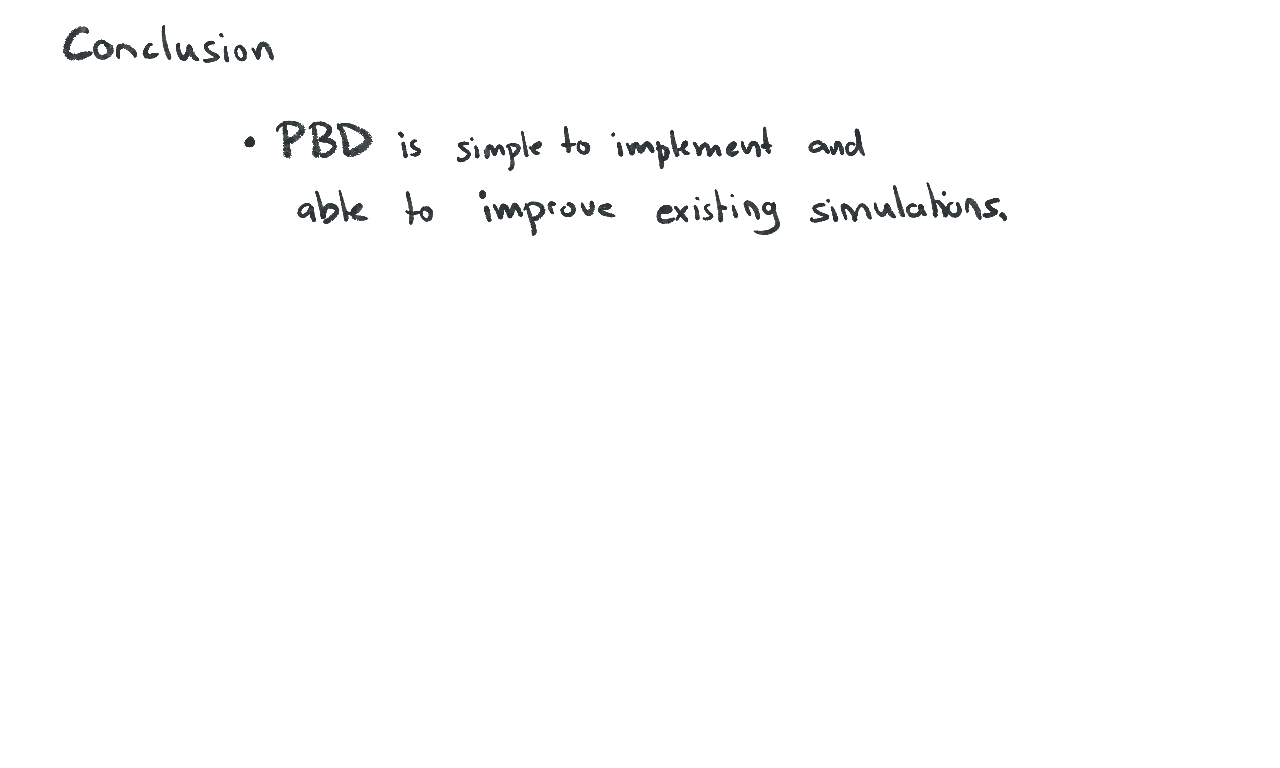 Conclusion
• PBD is simple to implement and
able to improve existing simulations.